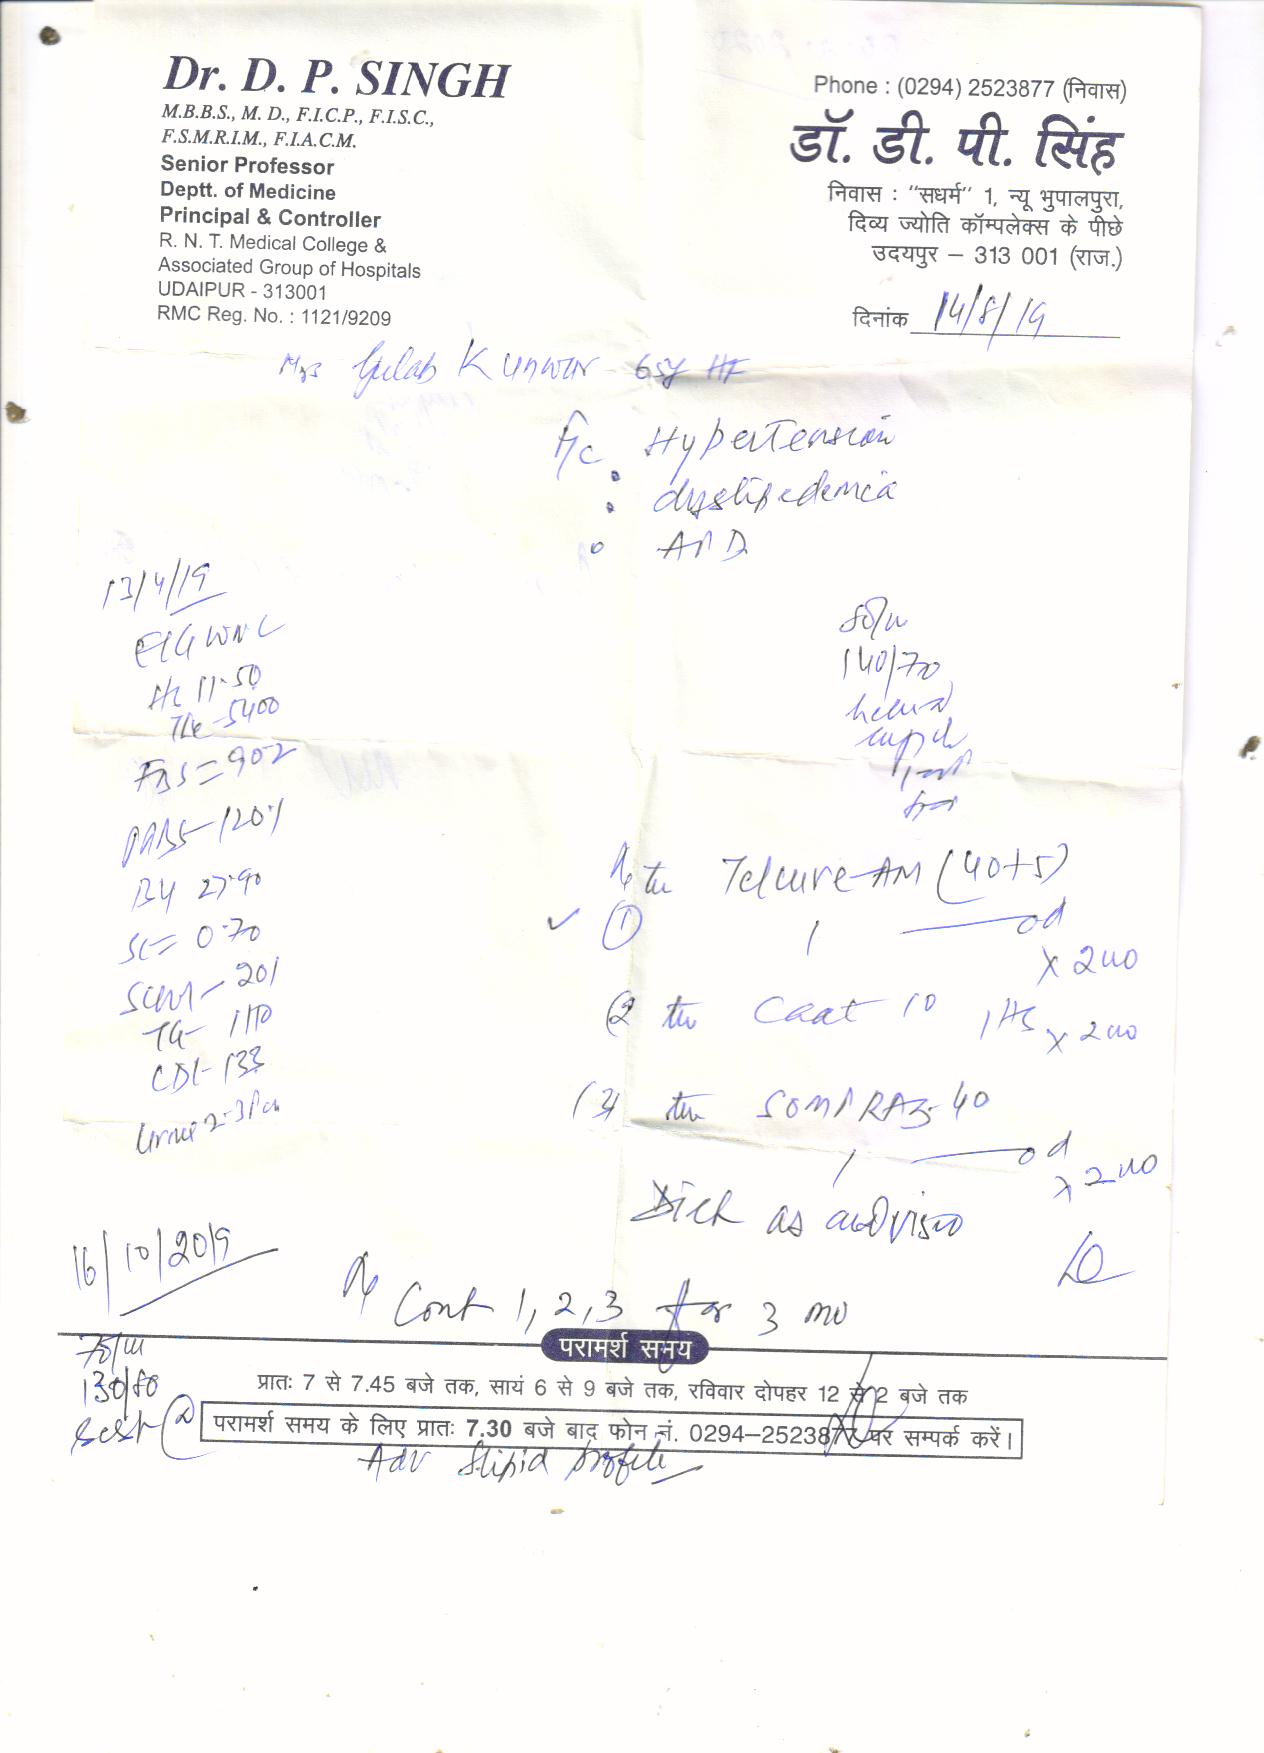 Dr. D. P. SINGH
M.B.B.S., M. D., F.I.C.P., F.I.S.C.,
F.S.M.R.I.M., F.I.A.C.M.
Senior Professor
Deptt. of Medicine
Principal & Controller
R. N. T. Medical College &
Associated Group of Hospitals
UDAIPUR - 313001
RMC Reg. No. : 1121/9209
Phone : (0294) 2523877 (निवास)
डॉ. डी. पी. सिंह
निवास : "सधर्म" 1, न्यू भुपालपुरा,
दिव्य ज्योति कॉम्पलेक्स के पीछे
उदयपुर – 313 001 (राज.)
दिनांक 14/8/19
Mrs Gulab Kunwar 65y
F/c Hypertension
dyslipedemia
APD
13/4/19
ECG WNL
11.50
TLC - 5400
FBS =
PPBS - 120
BU 27.90
SC = 0.70
- 201
TG - 110
LDL - 133
Urine 2-3 Pcu
80/m
140/70
Rx
① Telcure-AM (40+5)
1 — od
x 2 mo
(2 Caat 10 1 HS x 2 mo
(3) SOMPRAZ-40
1 — od
x 2 mo
Diet as advised
16/10/2019
Rx Cont 1, 2, 3 for 3 mo
78/m
130/80
परामर्श समय
प्रातः 7 से 7.45 बजे तक, सायं 6 से 9 बजे तक, रविवार दोपहर 12 से 2 बजे तक
परामर्श समय के लिए प्रातः 7.30 बजे बाद फोन नं. 0294–2523877 पर सम्पर्क करें।
Adv Slipid profile